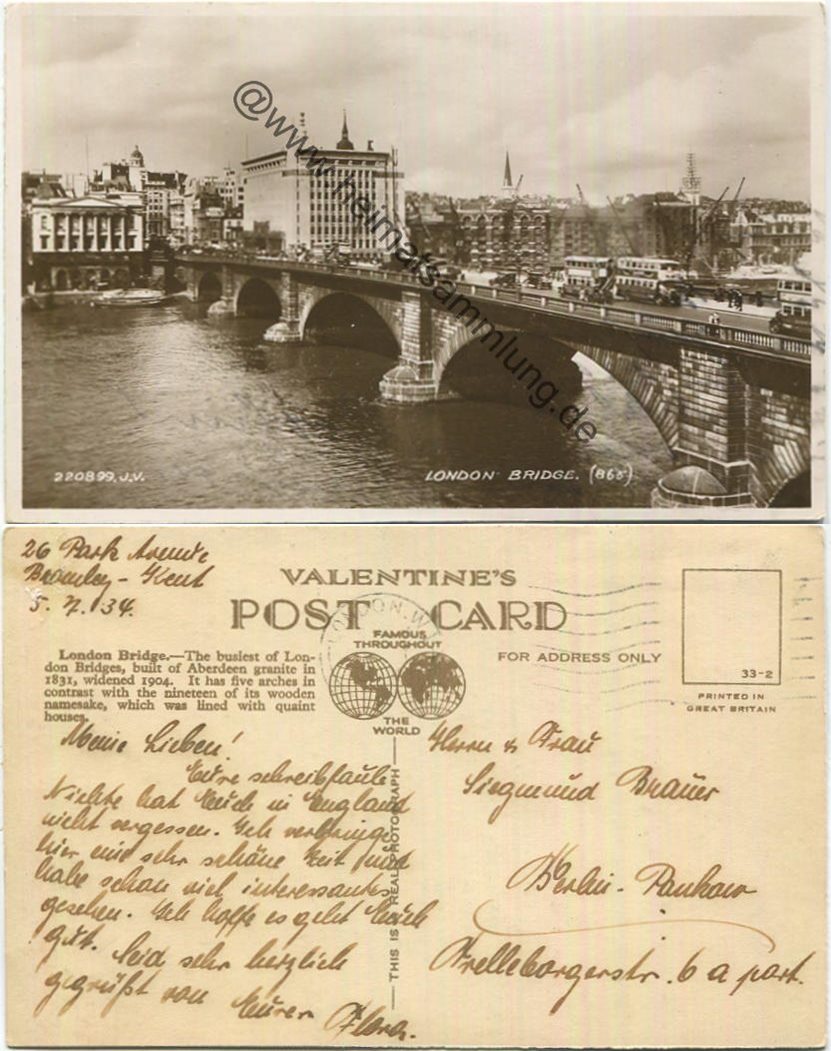 @www.heimatsammlung.de
220899.J.V.
LONDON BRIDGE. (865)
26 Park Avenue
Bromley - Kent
5. 7. 34.
VALENTINE'S
POST CARD
LONDON. W.
FAMOUS
THROUGHOUT
THE
WORLD
FOR ADDRESS ONLY
33-2
PRINTED IN
GREAT BRITAIN
London Bridge.—The busiest of Lon-
don Bridges, built of Aberdeen granite in
1831, widened 1904. It has five arches in
contrast with the nineteen of its wooden
namesake, which was lined with quaint
houses.
Meine Lieben!
Eure schreibfaule
Nichte hat Euch in England
nicht vergessen. Ich verbringe
hier eine sehr schöne Zeit und
habe schon viel interessantes
gesehen. Ich hoffe es geht Euch
gut. Seid sehr herzlich
gegrüßt von Eurer Flora.
THIS IS A REAL PHOTOGRAPH
Herrn & Frau
Siegmund Brauer
Berlin - Pankow
Trelleborgerstr. 6 a part.